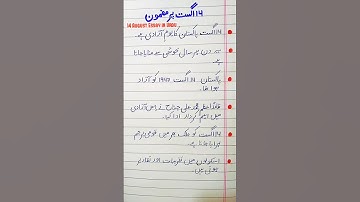 14 اگست پر مضمون
14 AUGUST ESSAY IN URDU
14 اگست پاکستان کا یوم آزادی ہے۔
یہ دن ہر سال خوشی سے منایا جاتا
ہے۔
پاکستان 14 اگست 1947 کو آزاد
ہوا تھا۔
قائد اعظم محمد علی جناح نے اس آزادی
میں اہم کردار ادا کیا۔
14 اگست کو ملک بھر میں قومی پرچم
لہرایا جاتا ہے۔
اسکولوں میں تقریبات اور تقاریر
ہوتی ہیں۔